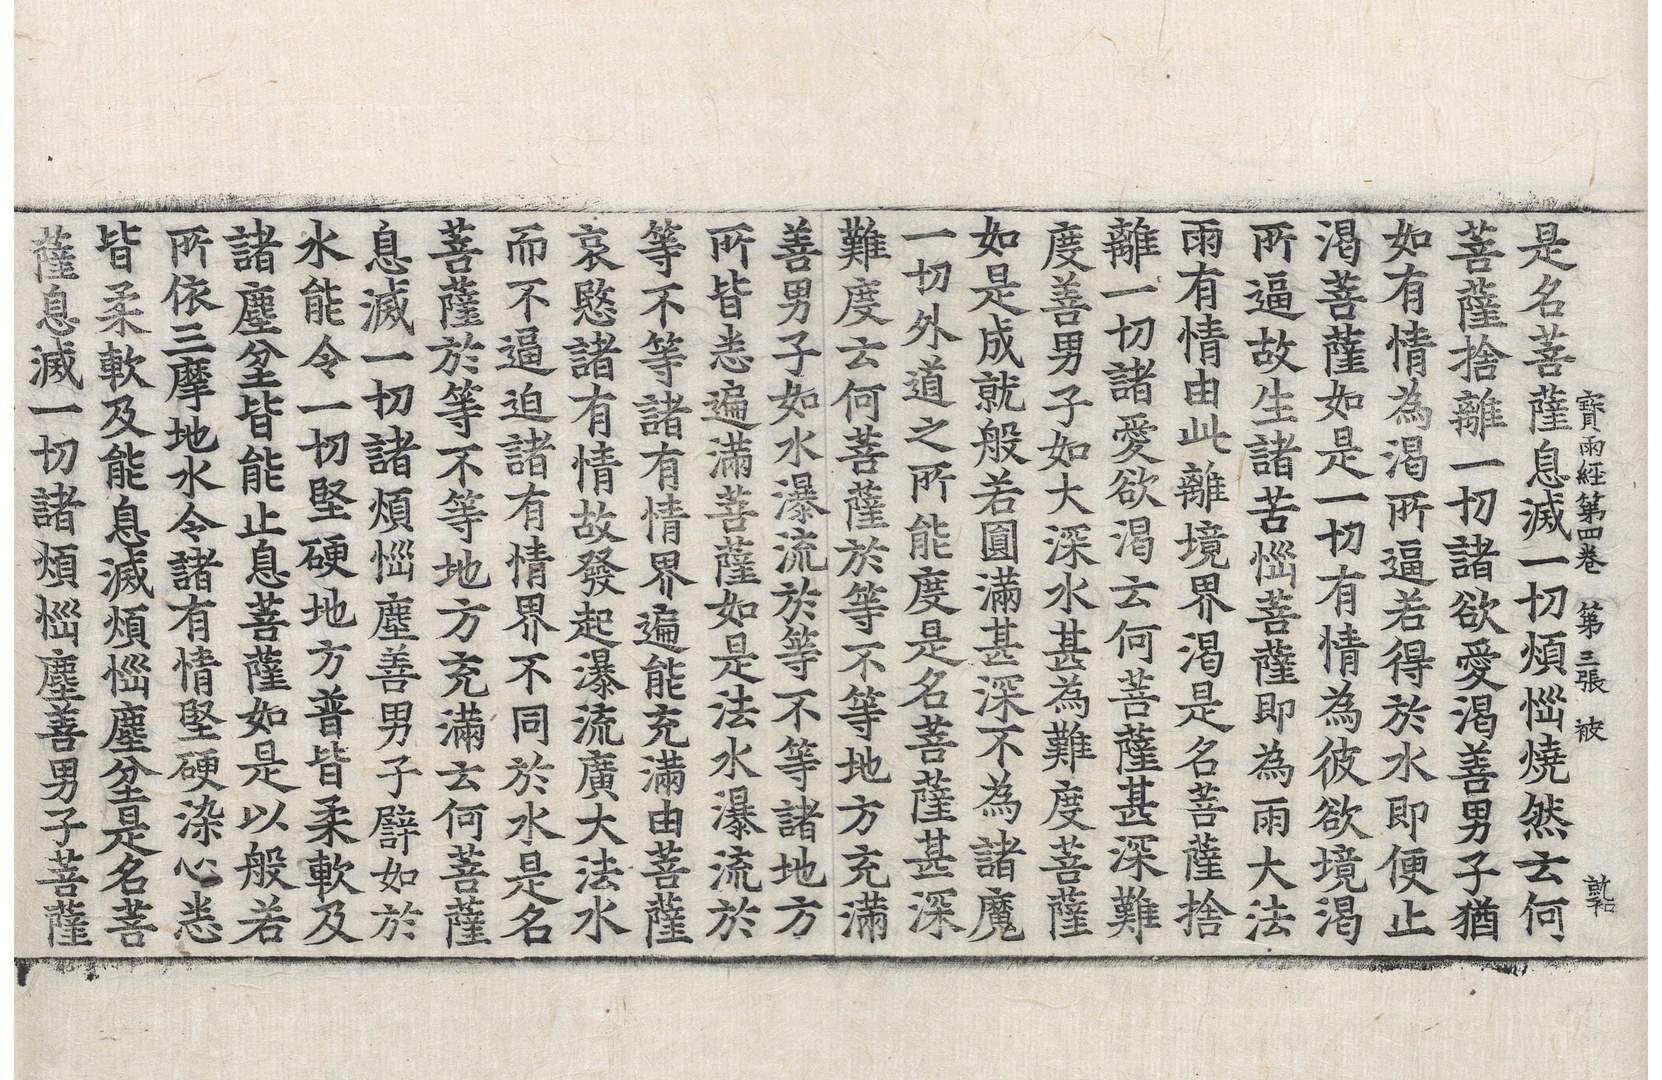 寶雨經第四卷 第三張 被
是名菩薩息滅一切煩惱燒然云何
菩薩捨離一切諸欲愛渴善男子猶
如有情為渴所逼若得於水即便止
渴菩薩如是一切有情為彼欲境渴
所逼故生諸苦惱菩薩即為雨大法
雨有情由此離境界渴是名菩薩捨
離一切諸愛欲渴云何菩薩甚深難
度善男子如大深水甚為難度菩薩
如是成就般若圓滿甚深不為諸魔
一切外道之所能度是名菩薩甚深
難度云何菩薩於等不等地方充滿
善男子如水瀑流於等不等諸地方
所皆悉遍滿菩薩如是法水瀑流於
等不等諸有情界遍能充滿由菩薩
哀愍諸有情故發起瀑流廣大法水
而不逼迫諸有情界不同於水是名
菩薩於等不等地方充滿云何菩薩
息滅一切諸煩惱塵善男子譬如於
水能令一切堅硬地方普皆柔軟及
諸塵坌皆能止息菩薩如是以般若
所依三摩地水令諸有情堅硬染心悉
皆柔軟及能息滅煩惱塵坌是名菩
薩息滅一切諸煩惱塵善男子菩薩